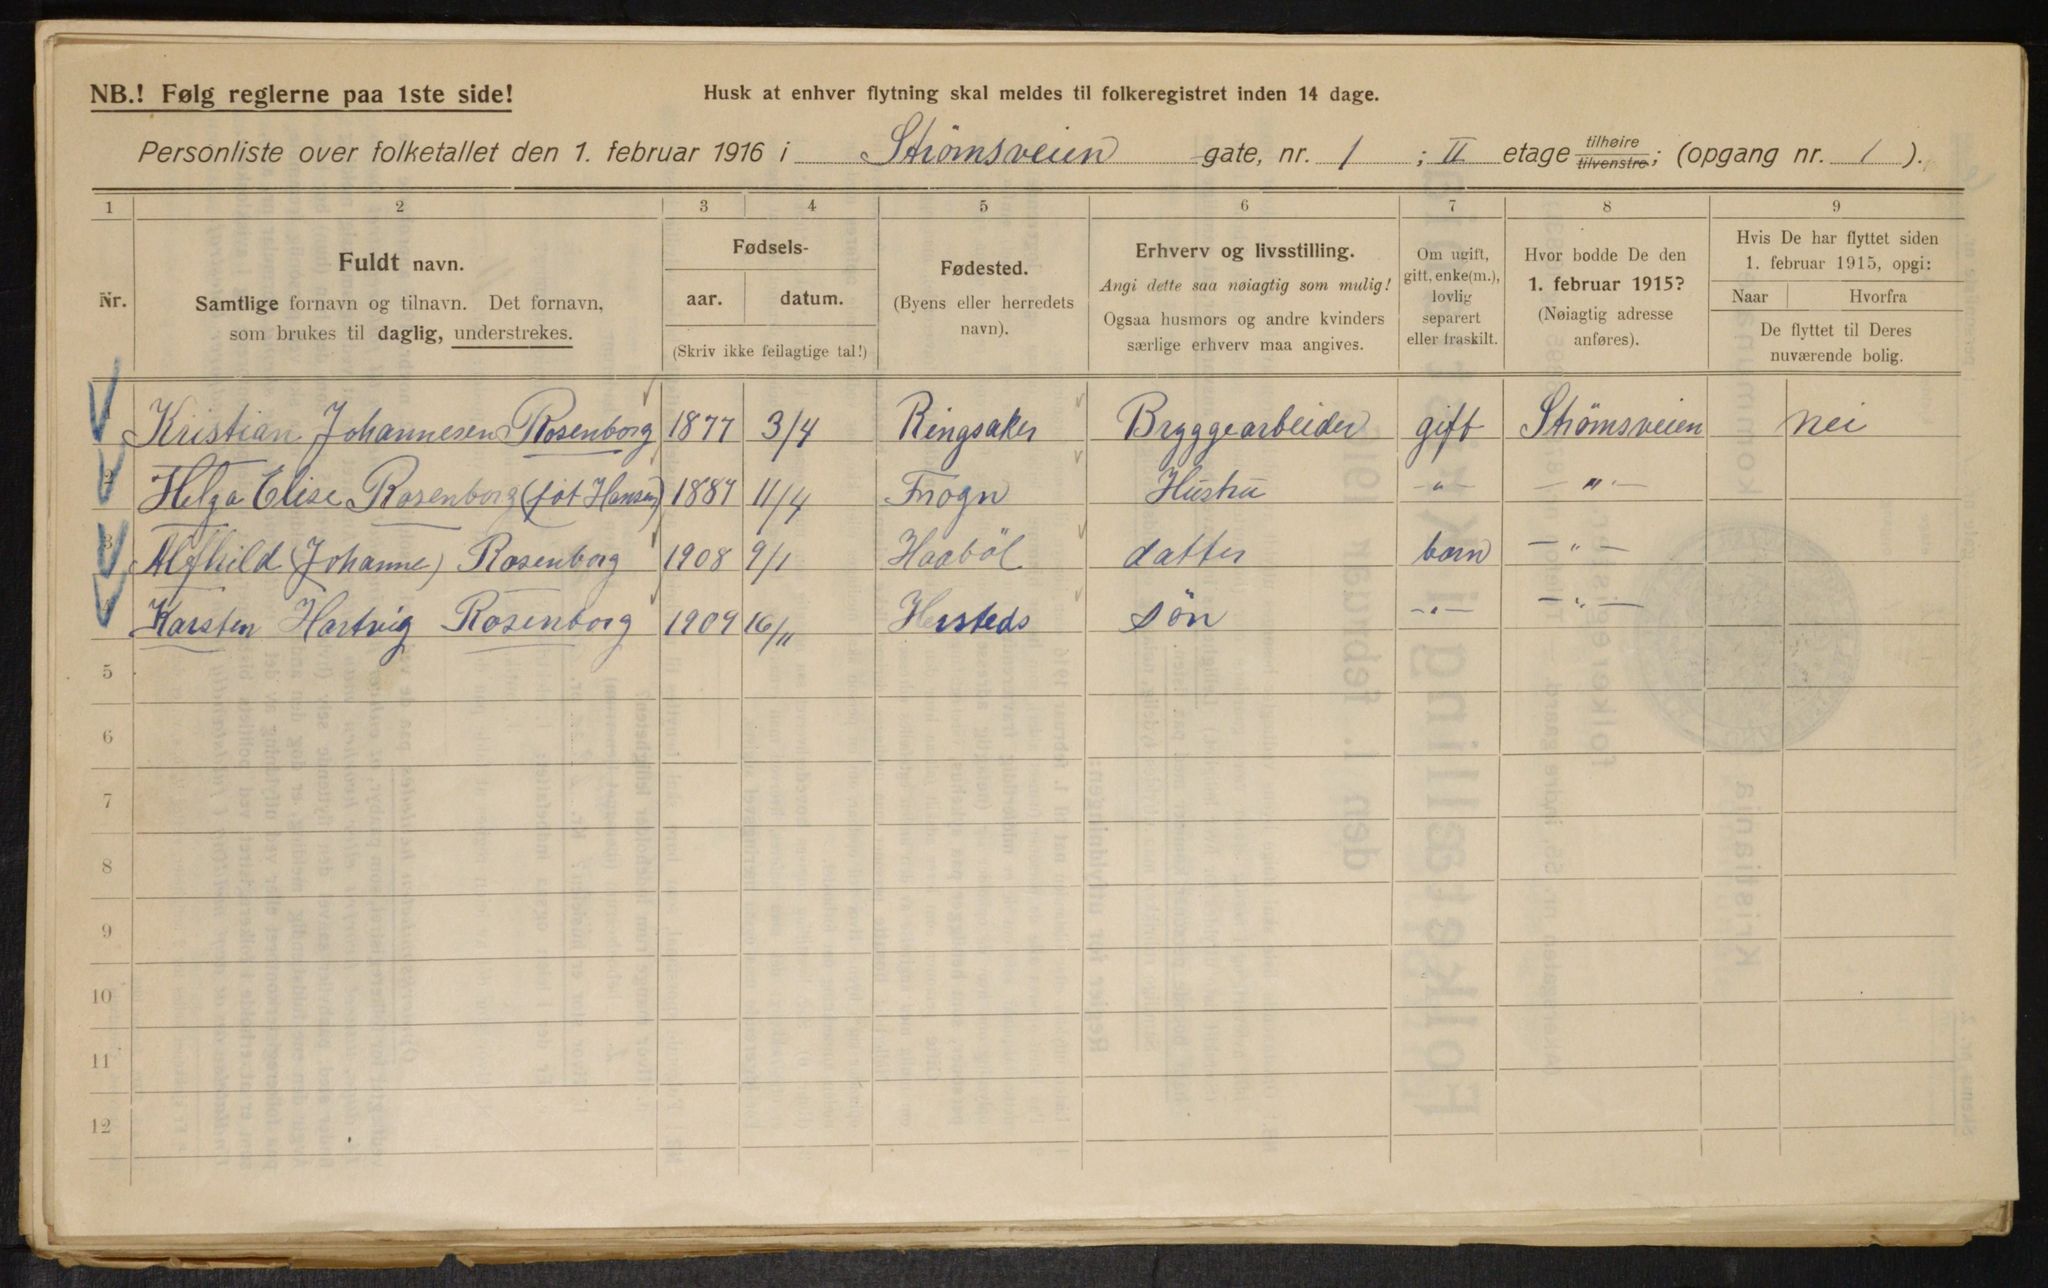 NB.! Følg reglerne paa 1ste side!
Husk at enhver flytning skal meldes til folkeregistret inden 14 dage.
Personliste over folketallet den 1. februar 1916 i Strömsveien gate, nr. 1 ; II etage tilhøire tilvenstre; (opgang nr. 1 ).
1 2 3 4 5 6 7 8 9
Nr.
Fuldt navn.
Samtlige fornavn og tilnavn. Det fornavn,
som brukes til daglig, understrekes.
Fødsels-
aar. datum.
(Skriv ikke feilagtige tal!)
Fødested.
(Byens eller herredets
navn).
Erhverv og livsstilling.
Angi dette saa nøiagtig som mulig!
Ogsaa husmors og andre kvinders
særlige erhverv maa angives.
Om ugift,
gift, enke(m.),
lovlig
separert
eller fraskilt.
Hvor bodde De den
1. februar 1915?
(Nøiagtig adresse
anføres).
Hvis De har flyttet siden
1. februar 1915, opgi:
Naar Hvorfra
De flyttet til Deres
nuværende bolig.
Kristian Johannesen Rosenborg 1877 3/4 Ringsaker Bryggearbeider gift Strömsveien nei
2 Helga Elise Rosenborg (föt Hansen) 1887 11/4 Frogn Hustru —"— —"—
3 Alfhild (Johanne) Rosenborg 1908 9/1 Haaböl datter barn —"—
Karsten Hartvig Rosenborg 1909 16/11 sön —"— —"—
5
6
7
8
9
10
11
12